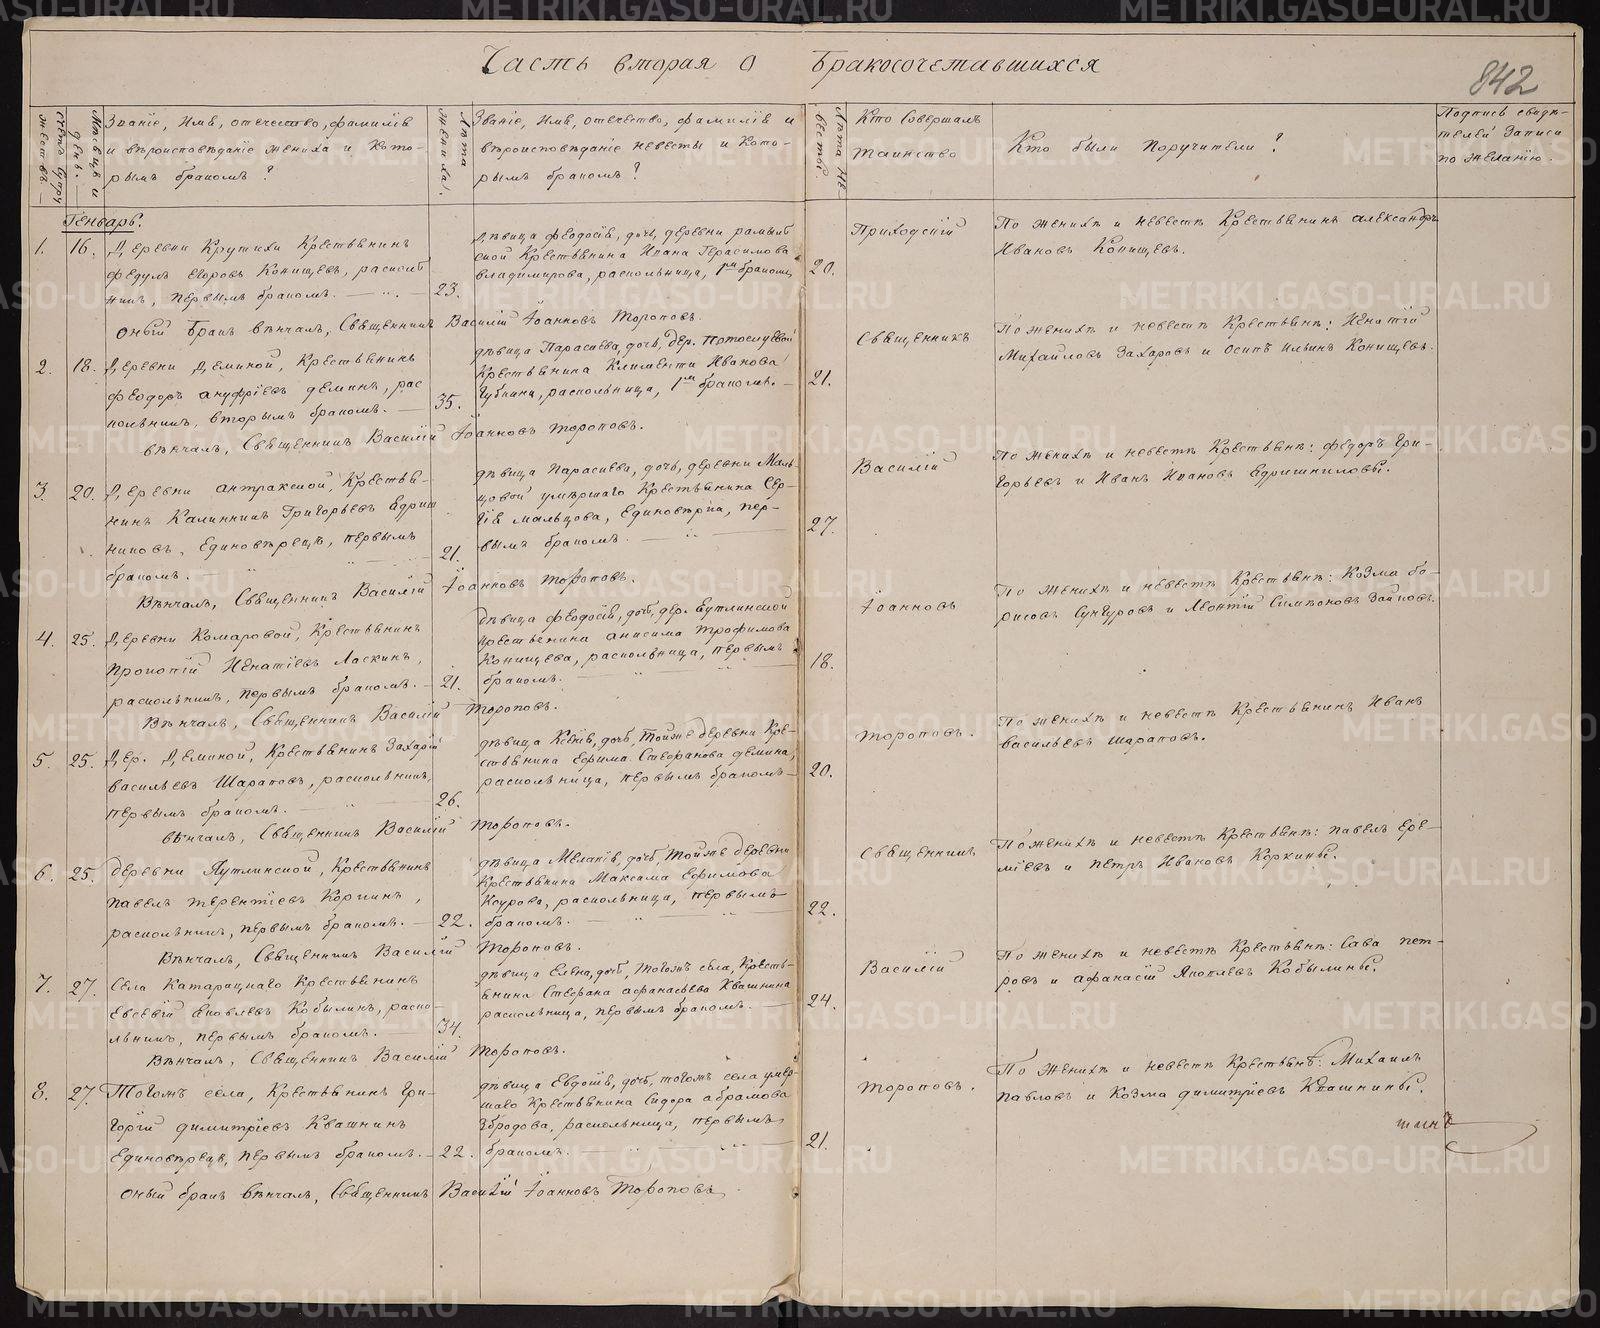 Часть вторая о Бракосочетавшихся
842
Счетъ супружествъ.
Мѣсяцъ и день.
Званіе, имя, отечество, фамилія
и вѣроисповѣданіе жениха и кото-
рымъ бракомъ?
Лѣта жениха.
Званіе, имя, отечество, фамилія и
вѣроисповѣданіе невесты и кото-
рымъ бракомъ?
Лѣта невесты.
Кто совершалъ
таинство
Кто были поручители?
Подпись свидѣ-
телей записи
по желанію.
Генварь.
1. 16. Деревни Крутихи Крестьянинъ
Федулъ Егоровъ Конищевъ, расколь
никъ, первымъ бракомъ.
23.
Дѣвица Феодосія, дочь, деревни
ской Крестьянина Ивана Герасимова
Владимирова, раскольница, 1мъ бракомъ
20.
Приходскій
По женихѣ и невестѣ Крестьянинъ Александръ
Ивановъ Конищевъ.
Оный бракъ вѣнчалъ, Священникъ Василій Іоанновъ Тороповъ.
2. 18. Деревни Деминой, Крестьянинъ
Феодоръ Ануфріевъ Деминъ, рас
кольникъ, вторымъ бракомъ.
35.
Дѣвица Параскева, дочь, дер.
Крестьянина Климента Иванова
Губкина, раскольница, 1мъ бракомъ.
21.
Священникъ
По женихѣ и невестѣ Крестьяне: Игнатій
Михайловъ Захаровъ и Осипъ Ильинъ Конищевъ.
вѣнчалъ, Священникъ Василій Іоанновъ Тороповъ.
3. 20. Деревни Антракской, Крестья-
нинъ Калинникъ Григорьевъ Едриш
никовъ, Единовѣрецъ, первымъ
бракомъ.
21.
Дѣвица Параскева, дочь, деревни Маль-
цовой умершаго Крестьянина Сер-
гія Мальцова, Единовѣрка, пер-
вымъ бракомъ.
27.
Василій
По женихѣ и невестѣ Крестьяне: Федоръ Гри-
горьевъ и Иванъ Ивановъ Едришниковы.
Вѣнчалъ, Священникъ Василій Іоанновъ Тороповъ.
4. 25. Деревни Комаровой, Крестьянинъ
Прокопій Игнатіевъ Ласкинъ,
раскольникъ, первымъ бракомъ.
21.
Дѣвица Феодосія, дочь, дер. Яутлинской
Крестьянина Анисима Трофимова
Конищева, раскольница, первымъ
бракомъ.
18.
Іоанновъ
По женихѣ и невестѣ Крестьяне: Козма Бо-
рисовъ Сунгуровъ и Леонтій Симѣоновъ Зайковъ.
Вѣнчалъ, Священникъ Василій Тороповъ.
5. 25. Дер. Деминой, Крестьянинъ Захарій
Васильевъ Шараповъ, раскольникъ,
первымъ бракомъ.
26.
Дѣвица Ксенія, дочь, тойже деревни Кре-
стьянина Ефима Стефанова Демина,
раскольница, первымъ бракомъ
20.
Тороповъ.
По женихѣ и невестѣ Крестьянинъ Иванъ
Васильевъ Шараповъ.
вѣнчалъ, Священникъ Василій Тороповъ.
6. 25. Деревни Яутлинской, Крестьянинъ
Павелъ Терентіевъ Коркинъ,
раскольникъ, первымъ бракомъ.
22.
Дѣвица Меланія, дочь, тойже деревни
Крестьянина Максима Ефимова
раскольница, первымъ
бракомъ.
22.
Священникъ
По женихѣ и невестѣ Крестьяне: Павелъ Ере-
міевъ и Петръ Ивановъ Коркины.
Вѣнчалъ, Священникъ Василій Тороповъ.
7. 27. Села Катарацкаго Крестьянинъ
Евсевій Яковлевъ Кобылинъ, раско-
льникъ, первымъ бракомъ.
34.
Дѣвица Елена, дочь, тогожъ села, Кресть-
янина Стефана Афанасьева Квашнина
раскольница, первымъ бракомъ.
24.
Василій
По женихѣ и невестѣ Крестьяне: Сава Пет-
ровъ и Афанасій Яковлевъ Кобылины.
Вѣнчалъ, Священникъ Василій Тороповъ.
8. 27. Тогожъ села, Крестьянинъ Гри-
горій Димитріевъ Квашнинъ
Единовѣрецъ, первымъ бракомъ.
22.
Дѣвица Евдокія, дочь, тогожъ села умер-
шаго Крестьянина Сидора Абрамова
Збродова, раскольница, первымъ
бракомъ.
21.
Тороповъ.
По женихѣ и невестѣ Крестьяне: Михаилъ
Павловъ и Козма Димитріевъ Квашнины.
Оный бракъ вѣнчалъ, Священникъ Василій Іоанновъ Тороповъ
METRIKI.GASO-URAL.RU